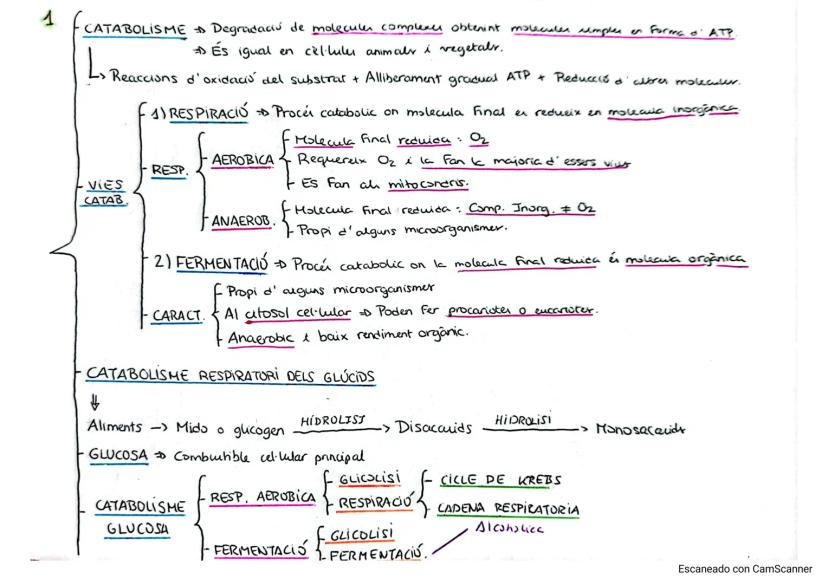 1
CATABOLISME => Degradació de molècules complexes obtenint molècules simples en forma d'ATP.
=> És igual en cèl·lules animals i vegetals.
Reaccions d'oxidació del substrat + Alliberament gradual ATP + Reducció d'altres molècules.
VIES CATAB.
1) RESPIRACIÓ => Procés catabolic on molecula final es redueix en molecula inorgànica
RESP.
AEROBICA
Molecula final reduida : O2
Requereix O2 i la fan la majoria d'essers vius
Es fan als mitocondris.
ANAEROB.
Molecula final reduida : Comp. Inorg. ≠ O2
Propi d'alguns microorganismes.
2) FERMENTACIÓ => Procés catabolic on la molecula final reduida és molecula orgànica
CARACT.
Propi d'alguns microorganismes
Al citosol cel·lular => Poden fer procariotes o eucariotes.
Anaerobic i baix rendiment orgànic.
CATABOLISME RESPIRATORI DELS GLÚCIDS
Aliments -> Mido o glucogen HIDROLISI -> Disacarids HIDROLISI -> Monosacarids
GLUCOSA => Combustible cel·lular principal
CATABOLISME GLUCOSA
RESP. AEROBICA
GLICOLISI
RESPIRACIÓ
CICLE DE KREBS
CADENA RESPIRATORIA
FERMENTACIÓ
GLICOLISI
FERMENTACIÓ.
Alcoholica
Escaneado con CamScanner